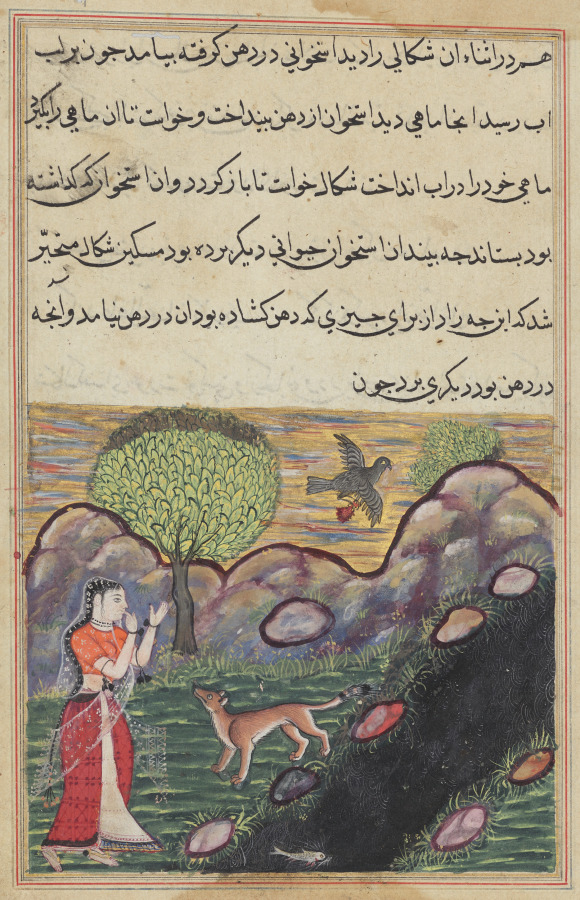 هم در اثناء ان شکالی را دید استخوانی در دهن کرفته بیامد جون بر لب
اب رسید انجا ماهی دید استخوان از دهن بینداخت و خواست تا ان ماهی را بکیرد
ماهی خود را در اب انداخت شکال خواست تا باز کردد و ان استخوان که کذاشته
بود بستاند جه بیند ان استخوان حیوانی دیکر برده بود مسکین شکال متحیّر
شد که این جه زاد از برای جیزی که دهن کشاده بود ان در دهن نیامد و انجه
در دهن بود دیکری برد جون